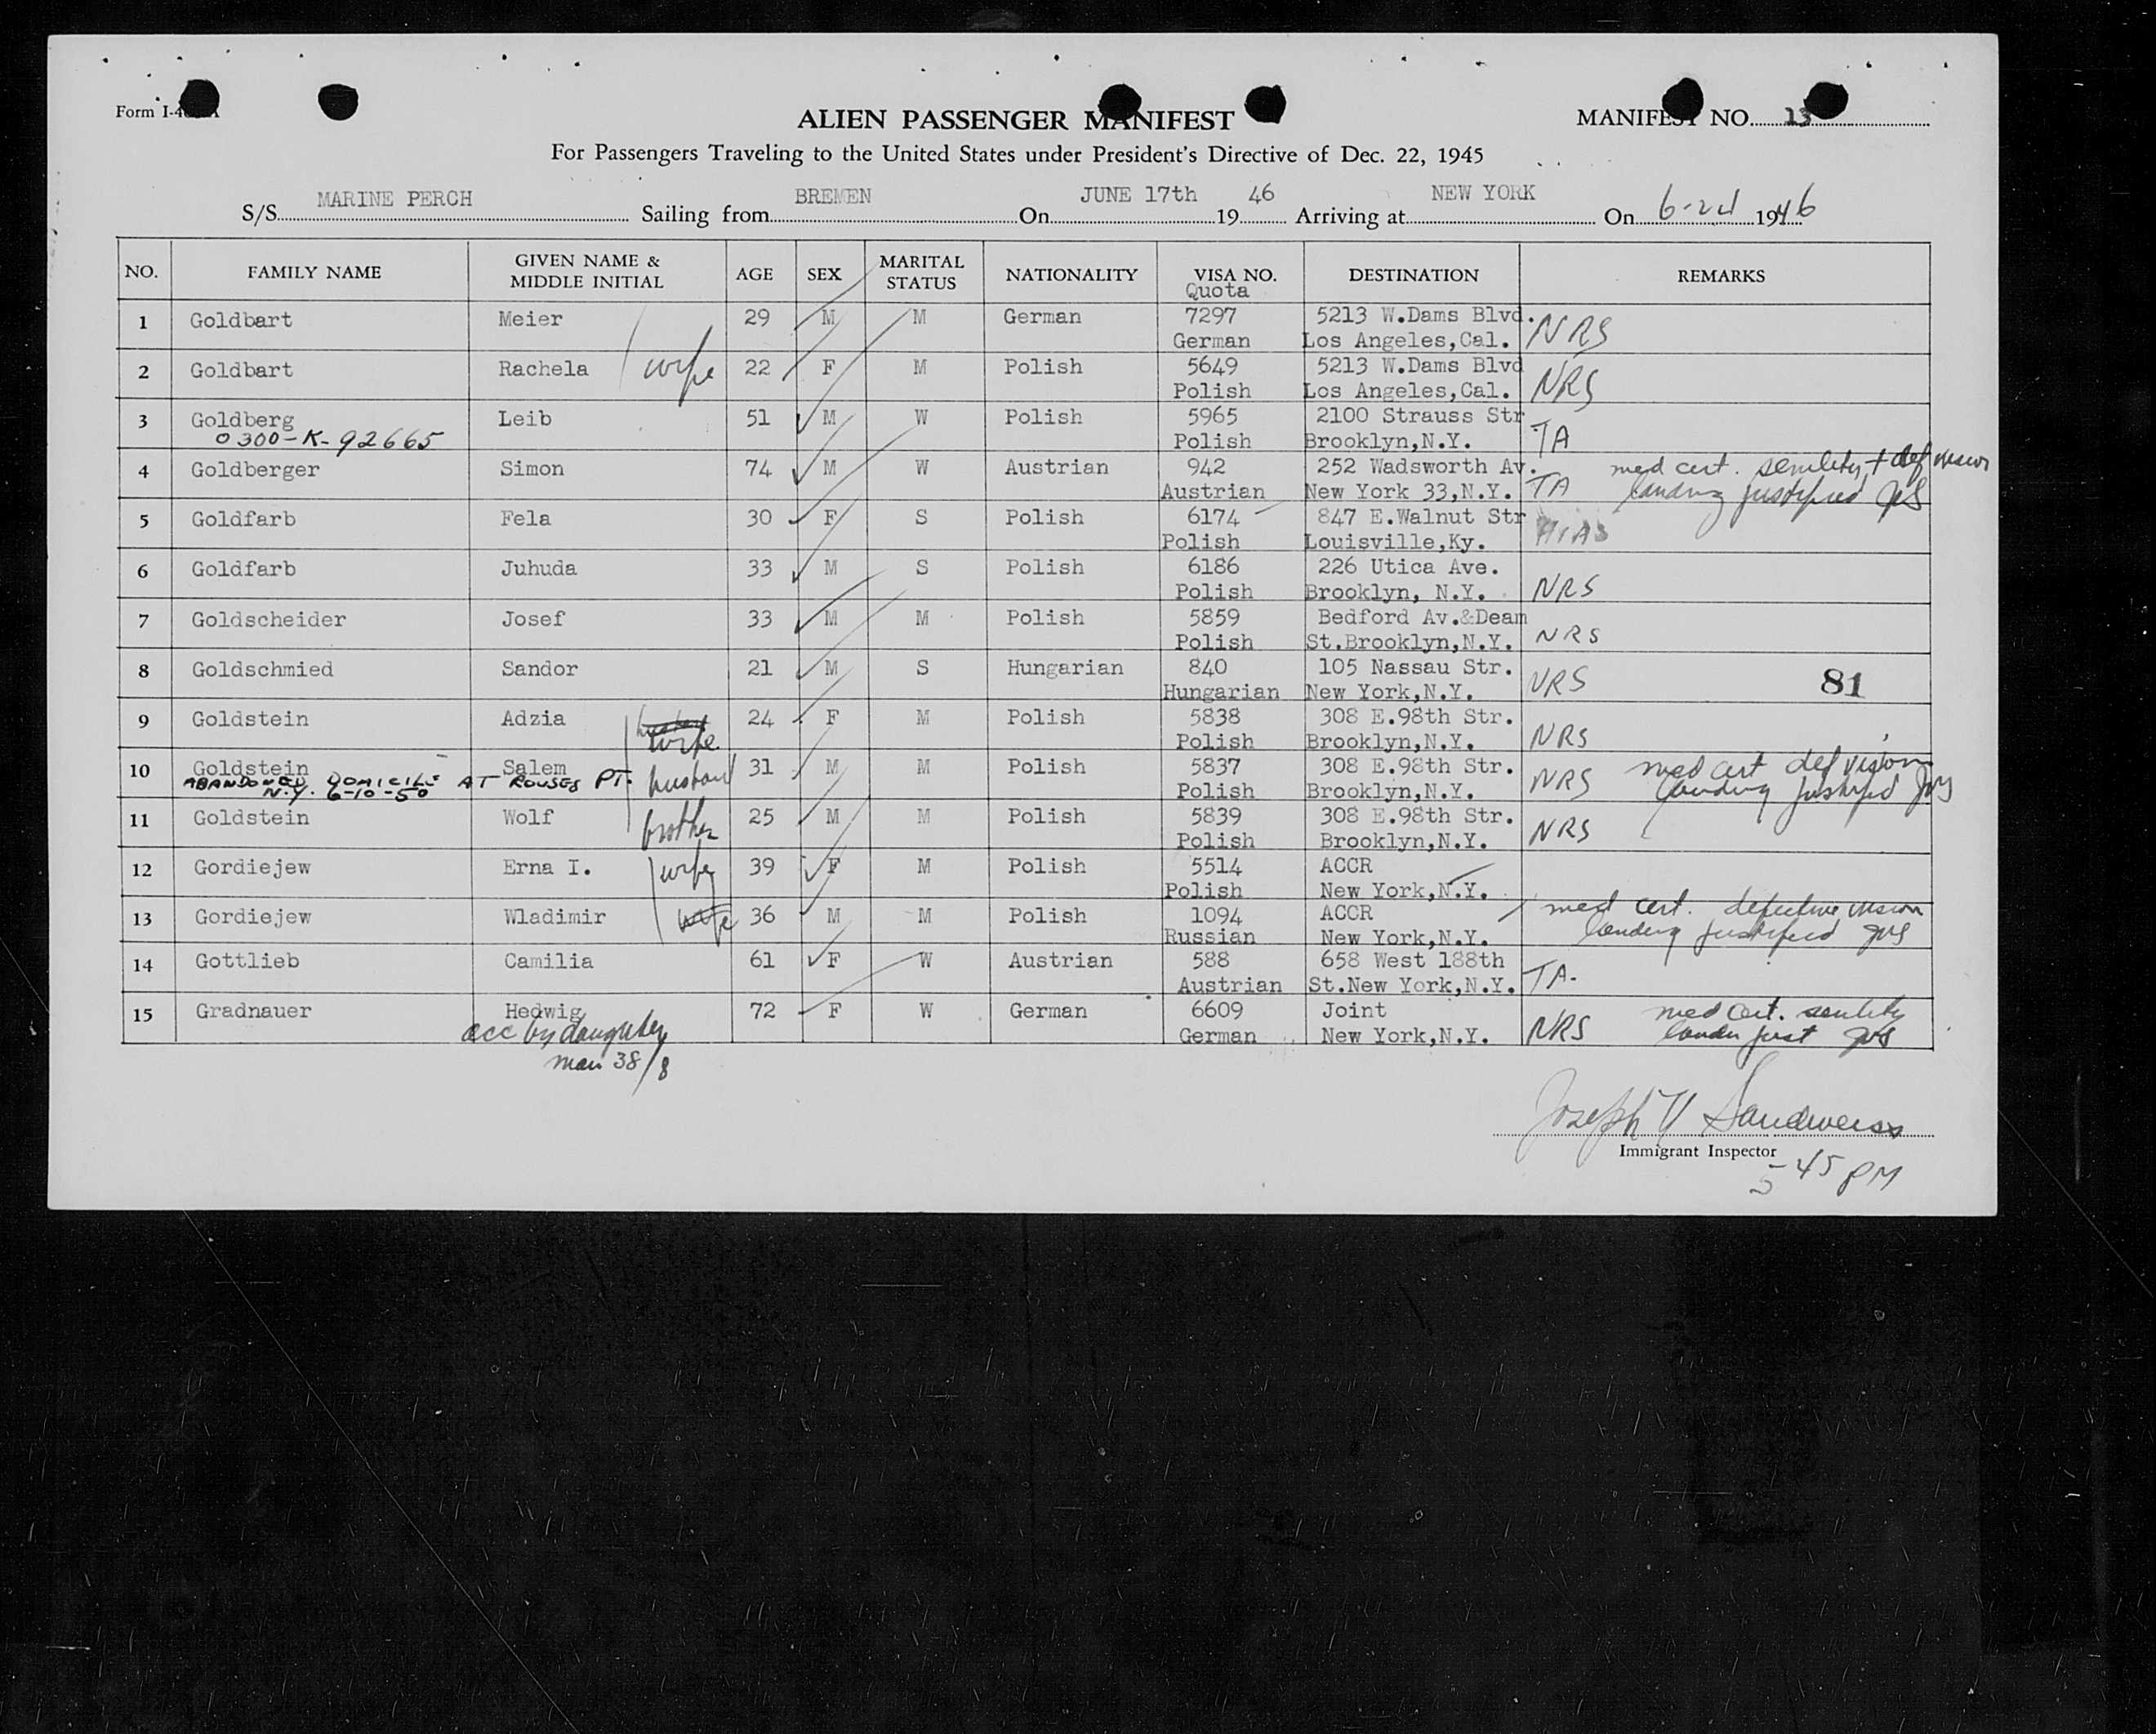 Form I-4
ALIEN PASSENGER MANIFEST
MANIFEST NO. 13
For Passengers Traveling to the United States under President's Directive of Dec. 22, 1945
S/S MARINE PERCH Sailing from BREMEN On JUNE 17th 19 46 Arriving at NEW YORK On 6-24 1946
NO. FAMILY NAME GIVEN NAME & MIDDLE INITIAL AGE SEX MARITAL STATUS NATIONALITY VISA NO. Quota DESTINATION REMARKS
1 Goldbart Meier 29 M M German 7297 5213 W.Dams Blvd.
German Los Angeles,Cal. NRS
2 Goldbart Rachela wife 22 F M Polish 5649 5213 W.Dams Blvd
Polish Los Angeles,Cal. NRS
3 Goldberg Leib 51 M W Polish 5965 2100 Strauss Str
0300-K-92665 Polish Brooklyn,N.Y. TA
4 Goldberger Simon 74 M W Austrian 942 252 Wadsworth Av. med cert. senility + def vision
Austrian New York 33,N.Y. TA landing justified
5 Goldfarb Fela 30 F S Polish 6174 847 E.Walnut Str
Polish Louisville,Ky. HIAS
6 Goldfarb Juhuda 33 M S Polish 6186 226 Utica Ave.
Polish Brooklyn, N.Y. NRS
7 Goldscheider Josef 33 M M Polish 5859 Bedford Av.&Dean
Polish St.Brooklyn,N.Y. NRS
8 Goldschmied Sandor 21 M S Hungarian 840 105 Nassau Str.
Hungarian New York,N.Y. NRS 81
9 Goldstein Adzia husband wife 24 F M Polish 5838 308 E.98th Str.
Polish Brooklyn,N.Y. NRS
10 Goldstein Salem husband 31 M M Polish 5837 308 E.98th Str. med cert def vision
ABANDONED DOMICILE AT ROUSES PT. Polish Brooklyn,N.Y. NRS landing justified
N.Y. 6-10-50
11 Goldstein Wolf brother 25 M M Polish 5839 308 E.98th Str.
Polish Brooklyn,N.Y. NRS
12 Gordiejew Erna I. wife 39 F M Polish 5514 ACCR
Polish New York,N.Y.
13 Gordiejew Wladimir wife 36 M M Polish 1094 ACCR med cert. defective vision
Russian New York,N.Y. landing justified
14 Gottlieb Camilia 61 F W Austrian 588 658 West 188th
Austrian St.New York,N.Y. TA.
15 Gradnauer Hedwig 72 F W German 6609 Joint med cert. senility
acc by daughter German New York,N.Y. NRS just
man 38/8
Joseph V Sandweiss
Immigrant Inspector
5-45 PM